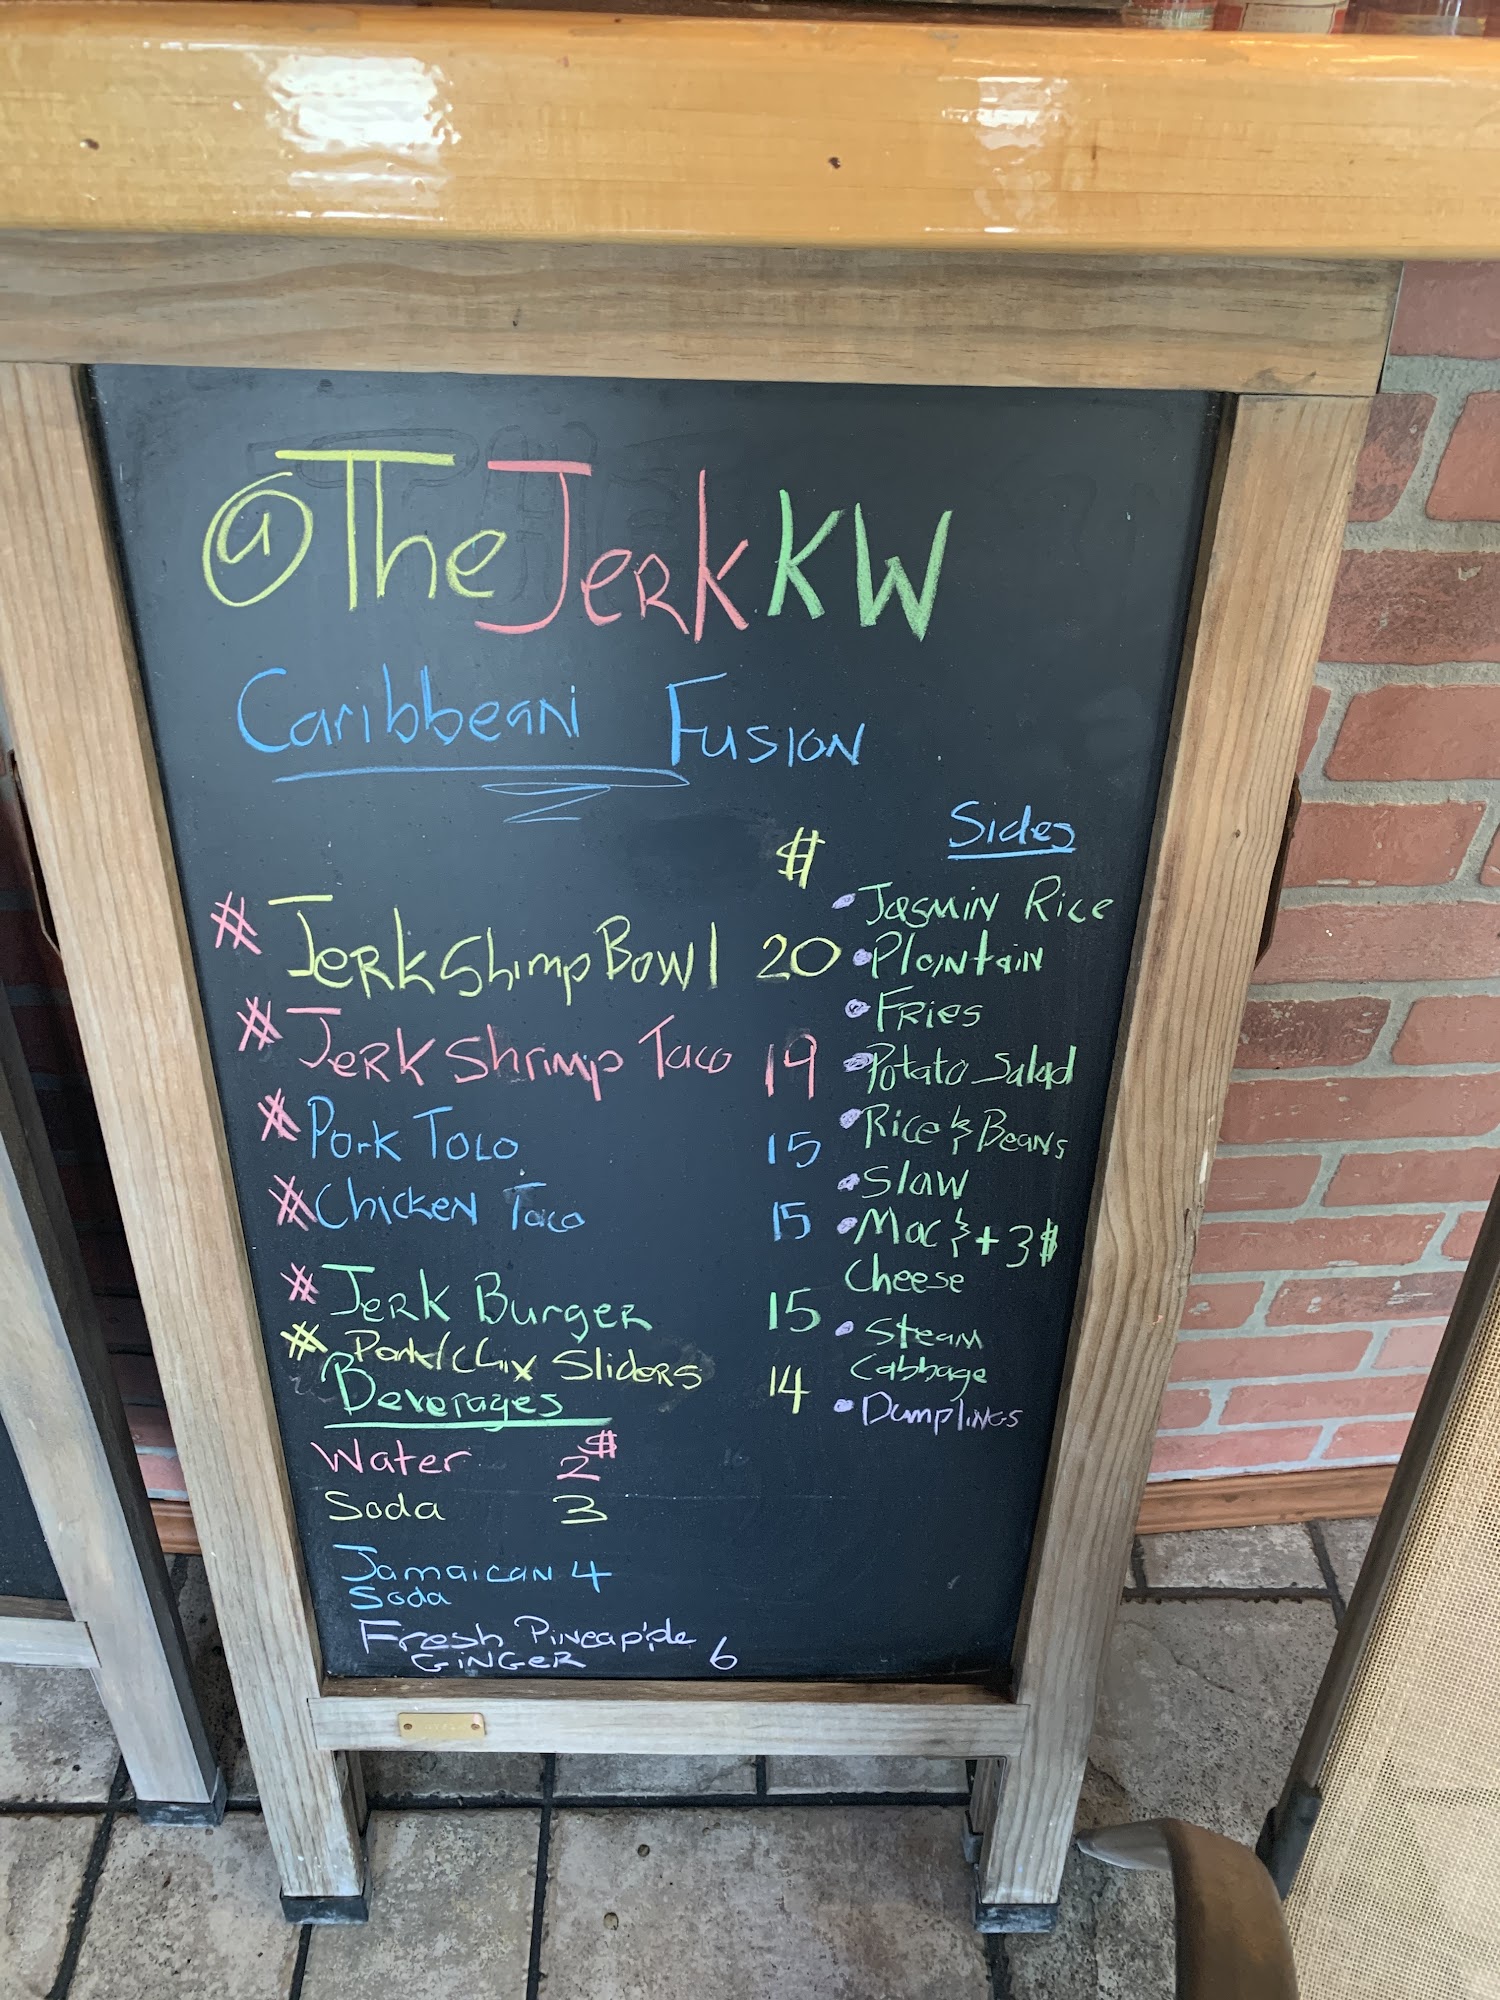 @TheJerkKW
Caribbean Fusion
$
# Jerk Shimp Bowl 20
# Jerk Shrimp Taco 19
# Pork Toco 15
# Chicken Taco 15
# Jerk Burger 15
# Pork/Chix Sliders 14
Beverages
Water 2$
Soda 3
Jamaican 4
Soda
Fresh Pineapple
Ginger 6
Sides
• Jasmin Rice
• Plantain
• Fries
• Potato Salad
• Rice & Beans
• Slaw
• Mac & +3$
Cheese
• Steam
Cabbage
• Dumplings